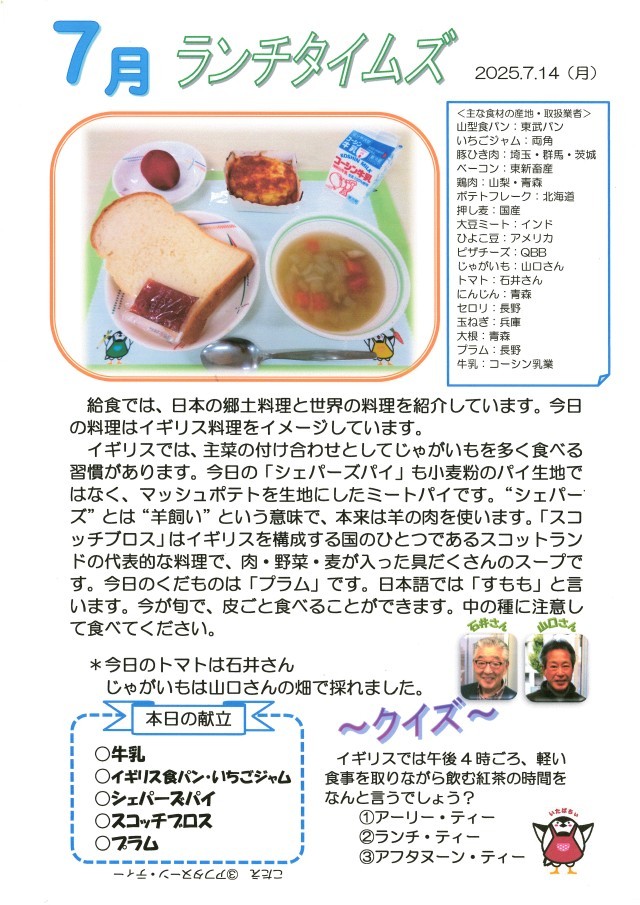 7月 ランチタイムズ
2025.7.14（月）
＜主な食材の産地・取扱業者＞
山型食パン：東武パン
いちごジャム：両角
豚ひき肉：埼玉・群馬・茨城
ベーコン：東新畜産
鶏肉：山梨・青森
ポテトフレーク：北海道
押し麦：国産
大豆ミート：インド
ひよこ豆：アメリカ
ピザチーズ：QBB
じゃがいも：山口さん
トマト：石井さん
にんじん：青森
セロリ：長野
玉ねぎ：兵庫
大根：青森
プラム：長野
牛乳：コーシン乳業
牛乳
KOSHIN MILK
コーシン牛乳
給食では、日本の郷土料理と世界の料理を紹介しています。今日
の料理はイギリス料理をイメージしています。
イギリスでは、主菜の付け合わせとしてじゃがいもを多く食べる
習慣があります。今日の「シェパーズパイ」も小麦粉のパイ生地で
はなく、マッシュポテトを生地にしたミートパイです。“シェパー
ズ”とは“羊飼い”という意味で、本来は羊の肉を使います。「スコ
ッチブロス」はイギリスを構成する国のひとつであるスコットラン
ドの代表的な料理で、肉・野菜・麦が入った具だくさんのスープで
す。今日のくだものは「プラム」です。日本語では「すもも」と言
います。今が旬で、皮ごと食べることができます。中の種に注意し
て食べてください。
石井さん
山口さん
＊今日のトマトは石井さん
じゃがいもは山口さんの畑で採れました。
本日の献立
○牛乳
○イギリス食パン・いちごジャム
○シェパーズパイ
○スコッチブロス
○プラム
～クイズ～
イギリスでは午後4時ごろ、軽い
食事を取りながら飲む紅茶の時間を
なんと言うでしょう？
①アーリー・ティー
②ランチ・ティー
③アフタヌーン・ティー
いたばるぃ
こたえ ③アフタヌーン・ティー